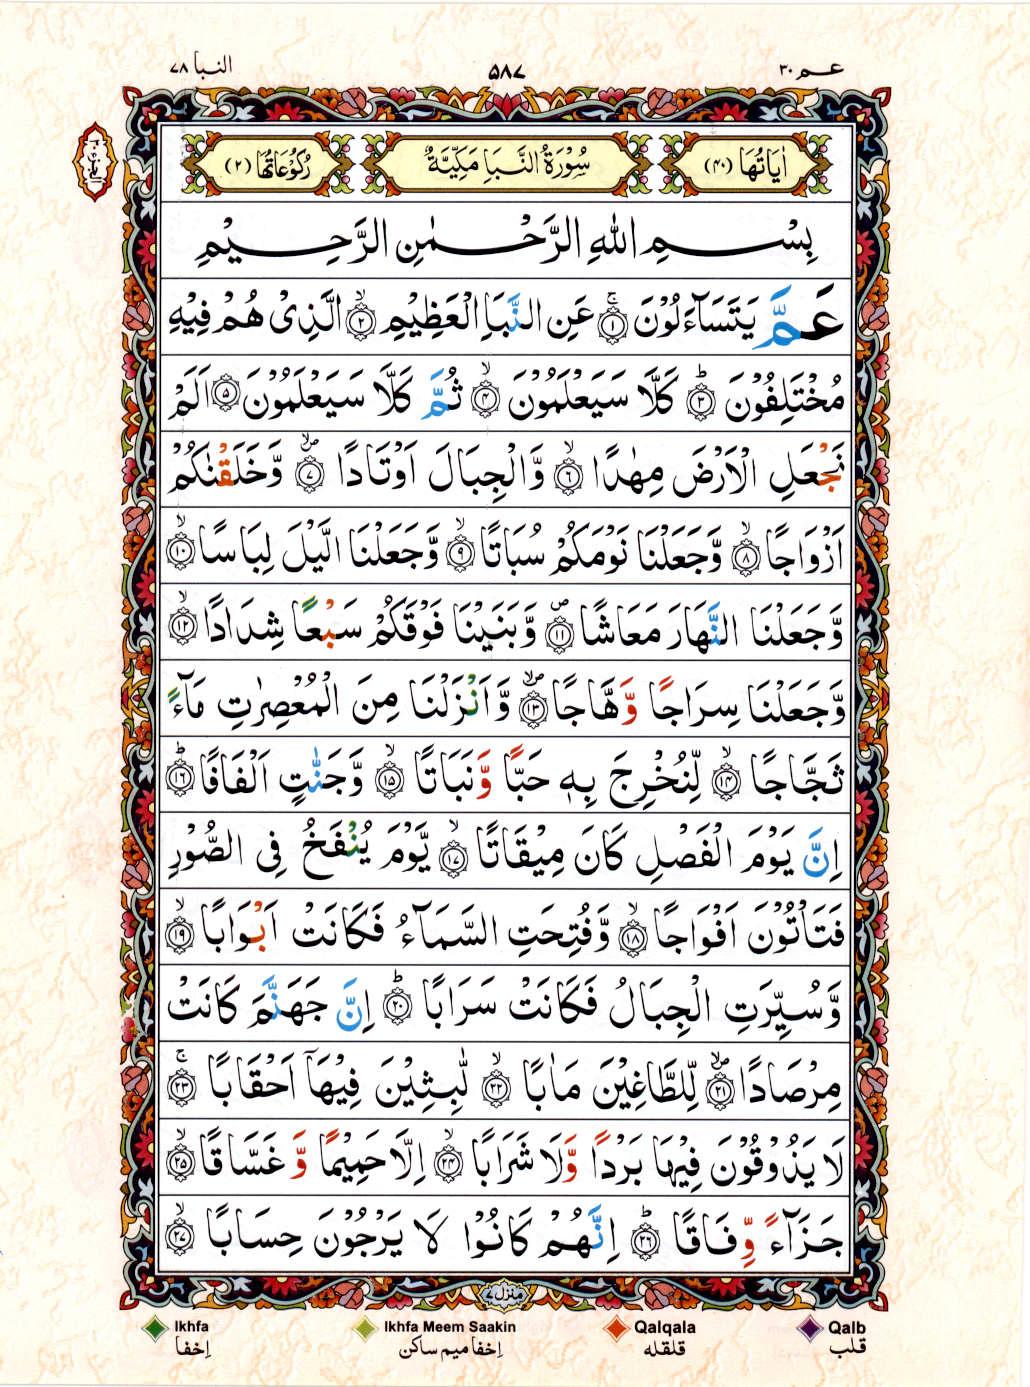 عـم ٣٠ ٥٨٧ النبا ٧٨
الجزء ٣٠
اٰيَاتُهَا (٤٠) سُوْرَةُ النَّبَاِ مَكِّيَّةٌ رُكُوْعَاتُهَا (٢)
بِسْمِ اللهِ الرَّحْمٰنِ الرَّحِيْمِ
عَمَّ يَتَسَآءَلُوْنَ ۚ﴿١﴾ عَنِ النَّبَاِ الْعَظِيْمِ ۙ﴿٢﴾ الَّذِىْ هُمْ فِيْهِ
مُخْتَلِفُوْنَ ؕ﴿٣﴾ كَلَّا سَيَعْلَمُوْنَ ۙ﴿٤﴾ ثُمَّ كَلَّا سَيَعْلَمُوْنَ ﴿٥﴾ اَلَمْ
نَجْعَلِ الْاَرْضَ مِهٰدًا ۙ﴿٦﴾ وَّالْجِبَالَ اَوْتَادًا ۪ۙ﴿٧﴾ وَّخَلَقْنٰكُمْ
اَزْوَاجًا ۙ﴿٨﴾ وَّجَعَلْنَا نَوْمَكُمْ سُبَاتًا ۙ﴿٩﴾ وَّجَعَلْنَا الَّيْلَ لِبَاسًا ۙ﴿١٠﴾
وَّجَعَلْنَا النَّهَارَ مَعَاشًا ۪﴿١١﴾ وَّبَنَيْنَا فَوْقَكُمْ سَبْعًا شِدَادًا ۙ﴿١٢﴾
وَّجَعَلْنَا سِرَاجًا وَّهَّاجًا ۪ۙ﴿١٣﴾ وَّاَنْزَلْنَا مِنَ الْمُعْصِرٰتِ مَآءً
ثَجَّاجًا ۙ﴿١٤﴾ لِّنُخْرِجَ بِهٖ حَبًّا وَّنَبَاتًا ۙ﴿١٥﴾ وَّجَنّٰتٍ اَلْفَافًا ؕ﴿١٦﴾
اِنَّ يَوْمَ الْفَصْلِ كَانَ مِيْقَاتًا ۙ﴿١٧﴾ يَّوْمَ يُنْفَخُ فِى الصُّوْرِ
فَتَاْتُوْنَ اَفْوَاجًا ۙ﴿١٨﴾ وَّفُتِحَتِ السَّمَآءُ فَكَانَتْ اَبْوَابًا ۙ﴿١٩﴾
وَّسُيِّرَتِ الْجِبَالُ فَكَانَتْ سَرَابًا ؕ﴿٢٠﴾ اِنَّ جَهَنَّمَ كَانَتْ
مِرْصَادًا ۪ۙ﴿٢١﴾ لِّلطَّاغِيْنَ مَاٰبًا ۙ﴿٢٢﴾ لّٰبِثِيْنَ فِيْهَاۤ اَحْقَابًا ۚ﴿٢٣﴾
لَا يَذُوْقُوْنَ فِيْهَا بَرْدًا وَّلَا شَرَابًا ۙ﴿٢٤﴾ اِلَّا حَمِيْمًا وَّغَسَّاقًا ۙ﴿٢٥﴾
جَزَآءً وِّفَاقًا ؕ﴿٢٦﴾ اِنَّهُمْ كَانُوْا لَا يَرْجُوْنَ حِسَابًا ۙ﴿٢٧﴾
منزل ٧
Ikhfa Ikhfa Meem Saakin Qalqala Qalb
إخفا إخفا ميم ساكن قلقله قلب